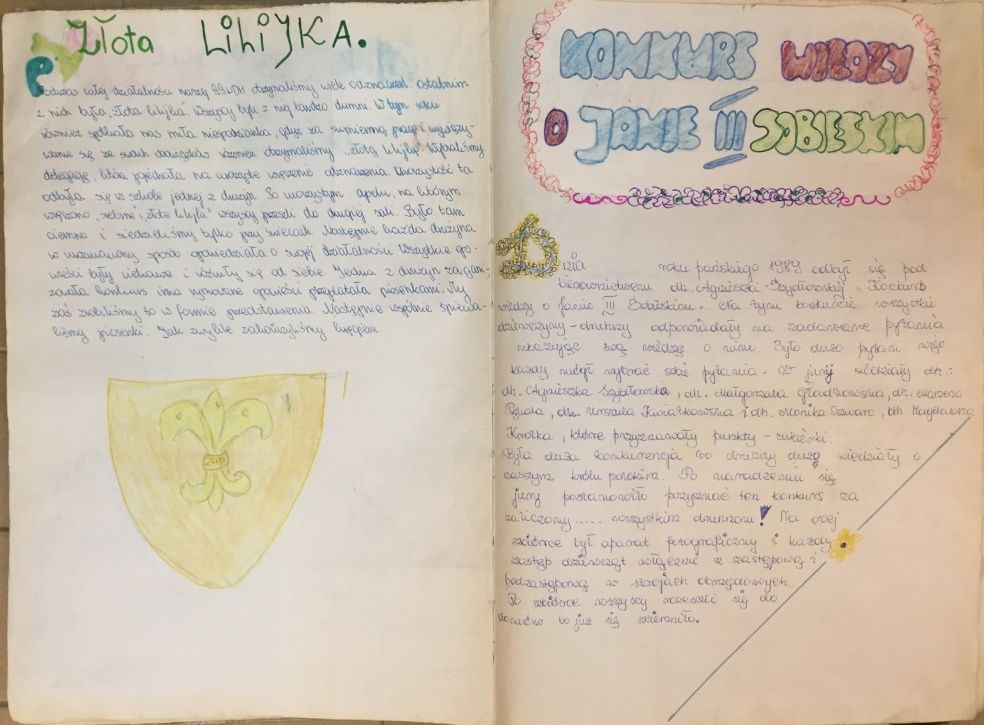 Złota LiLiJKA.
Podczas całej działalności naszej 99WDH otrzymaliśmy wiele odznaczeń ostatnim
z nich była „złota lilijka". Wszyscy byli z niej bardzo dumni. W tym roku
również spotkała nas miła niespodzianka, gdyż za sumienną pracę i wywiązy-
wanie się ze swoich obowiązków również otrzymaliśmy „złotą lilijkę". Wybraliśmy
delegację, która pojechała na uroczyste wręczenie odznaczenia. Uroczystość ta
odbyła się w szkole jednej z drużyn. Po uroczystym apelu, na którym
wręczono „srebrne i złote lilijki" wszyscy przeszli do drugiej sali. Było tam
ciemno i siedzieliśmy tylko przy świecach. Następnie każda drużyna
w sposób opowiedziała o swojej działalności. Wszystkie opo-
wieści były ciekawe i różniły się od siebie. Jedna z drużyn zagani-
zowała konkurs inna rymowane opowieści przeplatała piosenkami. My
zaś zrobiliśmy to w formie przedstawienia. Następnie wspólnie śpiewa-
liśmy piosenki. Jak zwykle zakończyliśmy kręgiem.
ZHP
KONKURS WIEDZY
O JANIE III SOBIESKIM
Dnia roku pańskiego 1989 odbył się pod
kierownictwem dh. Agnieszki Szydłowskiej „Konkurs
wiedzy o Janie III Sobieskim. Na tym konkursie wszystkie
dziewczyny-druhny odpowiadały na zadawane pytania
ukazując swą wiedzę o nim. Było dużo pytań więc
każdy mógł wybrać sobie pytania. W jury siedziały dh.:
dh. Agnieszka Szydłowska, dh. Małgorzata, dh. Marzena
dh. Urszula Kwiatkowska i dh. Monika Szwarc, dh. Magdalena
Krolka, które przyznawały punkty - cukierki.
Była duża konkurencja bo druhny dużo wiedziały o
naszym królu polskim. Po naradzeniu się
jury postanowiło przyznać ten konkurs za
zaliczony..... wszystkim druhnom! Na owej
zbiórce był aparat fotograficzny i każdy
zastęp dziewcząt włącznie z zastępową i
podzastępową w strojach obrzędowych
Po zbiórce wszyscy rozeszli się do
domów bo już się ściemniło.